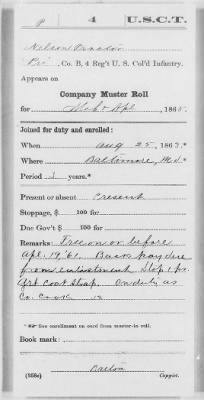 P 4 U.S.C.T.
Nelson
Pri, Co. B, 4 Reg't U. S. Col'd Infantry.
Appears on
Company Muster Roll
for Mch & Apl, 1865.
Joined for duty and enrolled:
When Aug 25, 1863.*
Where Baltimore, Md.
Period 3 years.*
Present or absent Present
Stoppage, $ 100 for
Due Gov't $ 100 for
Remarks: Free on or before
Apr. 19, '61. pay due
from enlistment Stop 1 pr.
Grt Coat Strap. On duty as
Co. Cook
* See enrollment on card from muster-in roll.
Book mark:
(358c) Copyist.